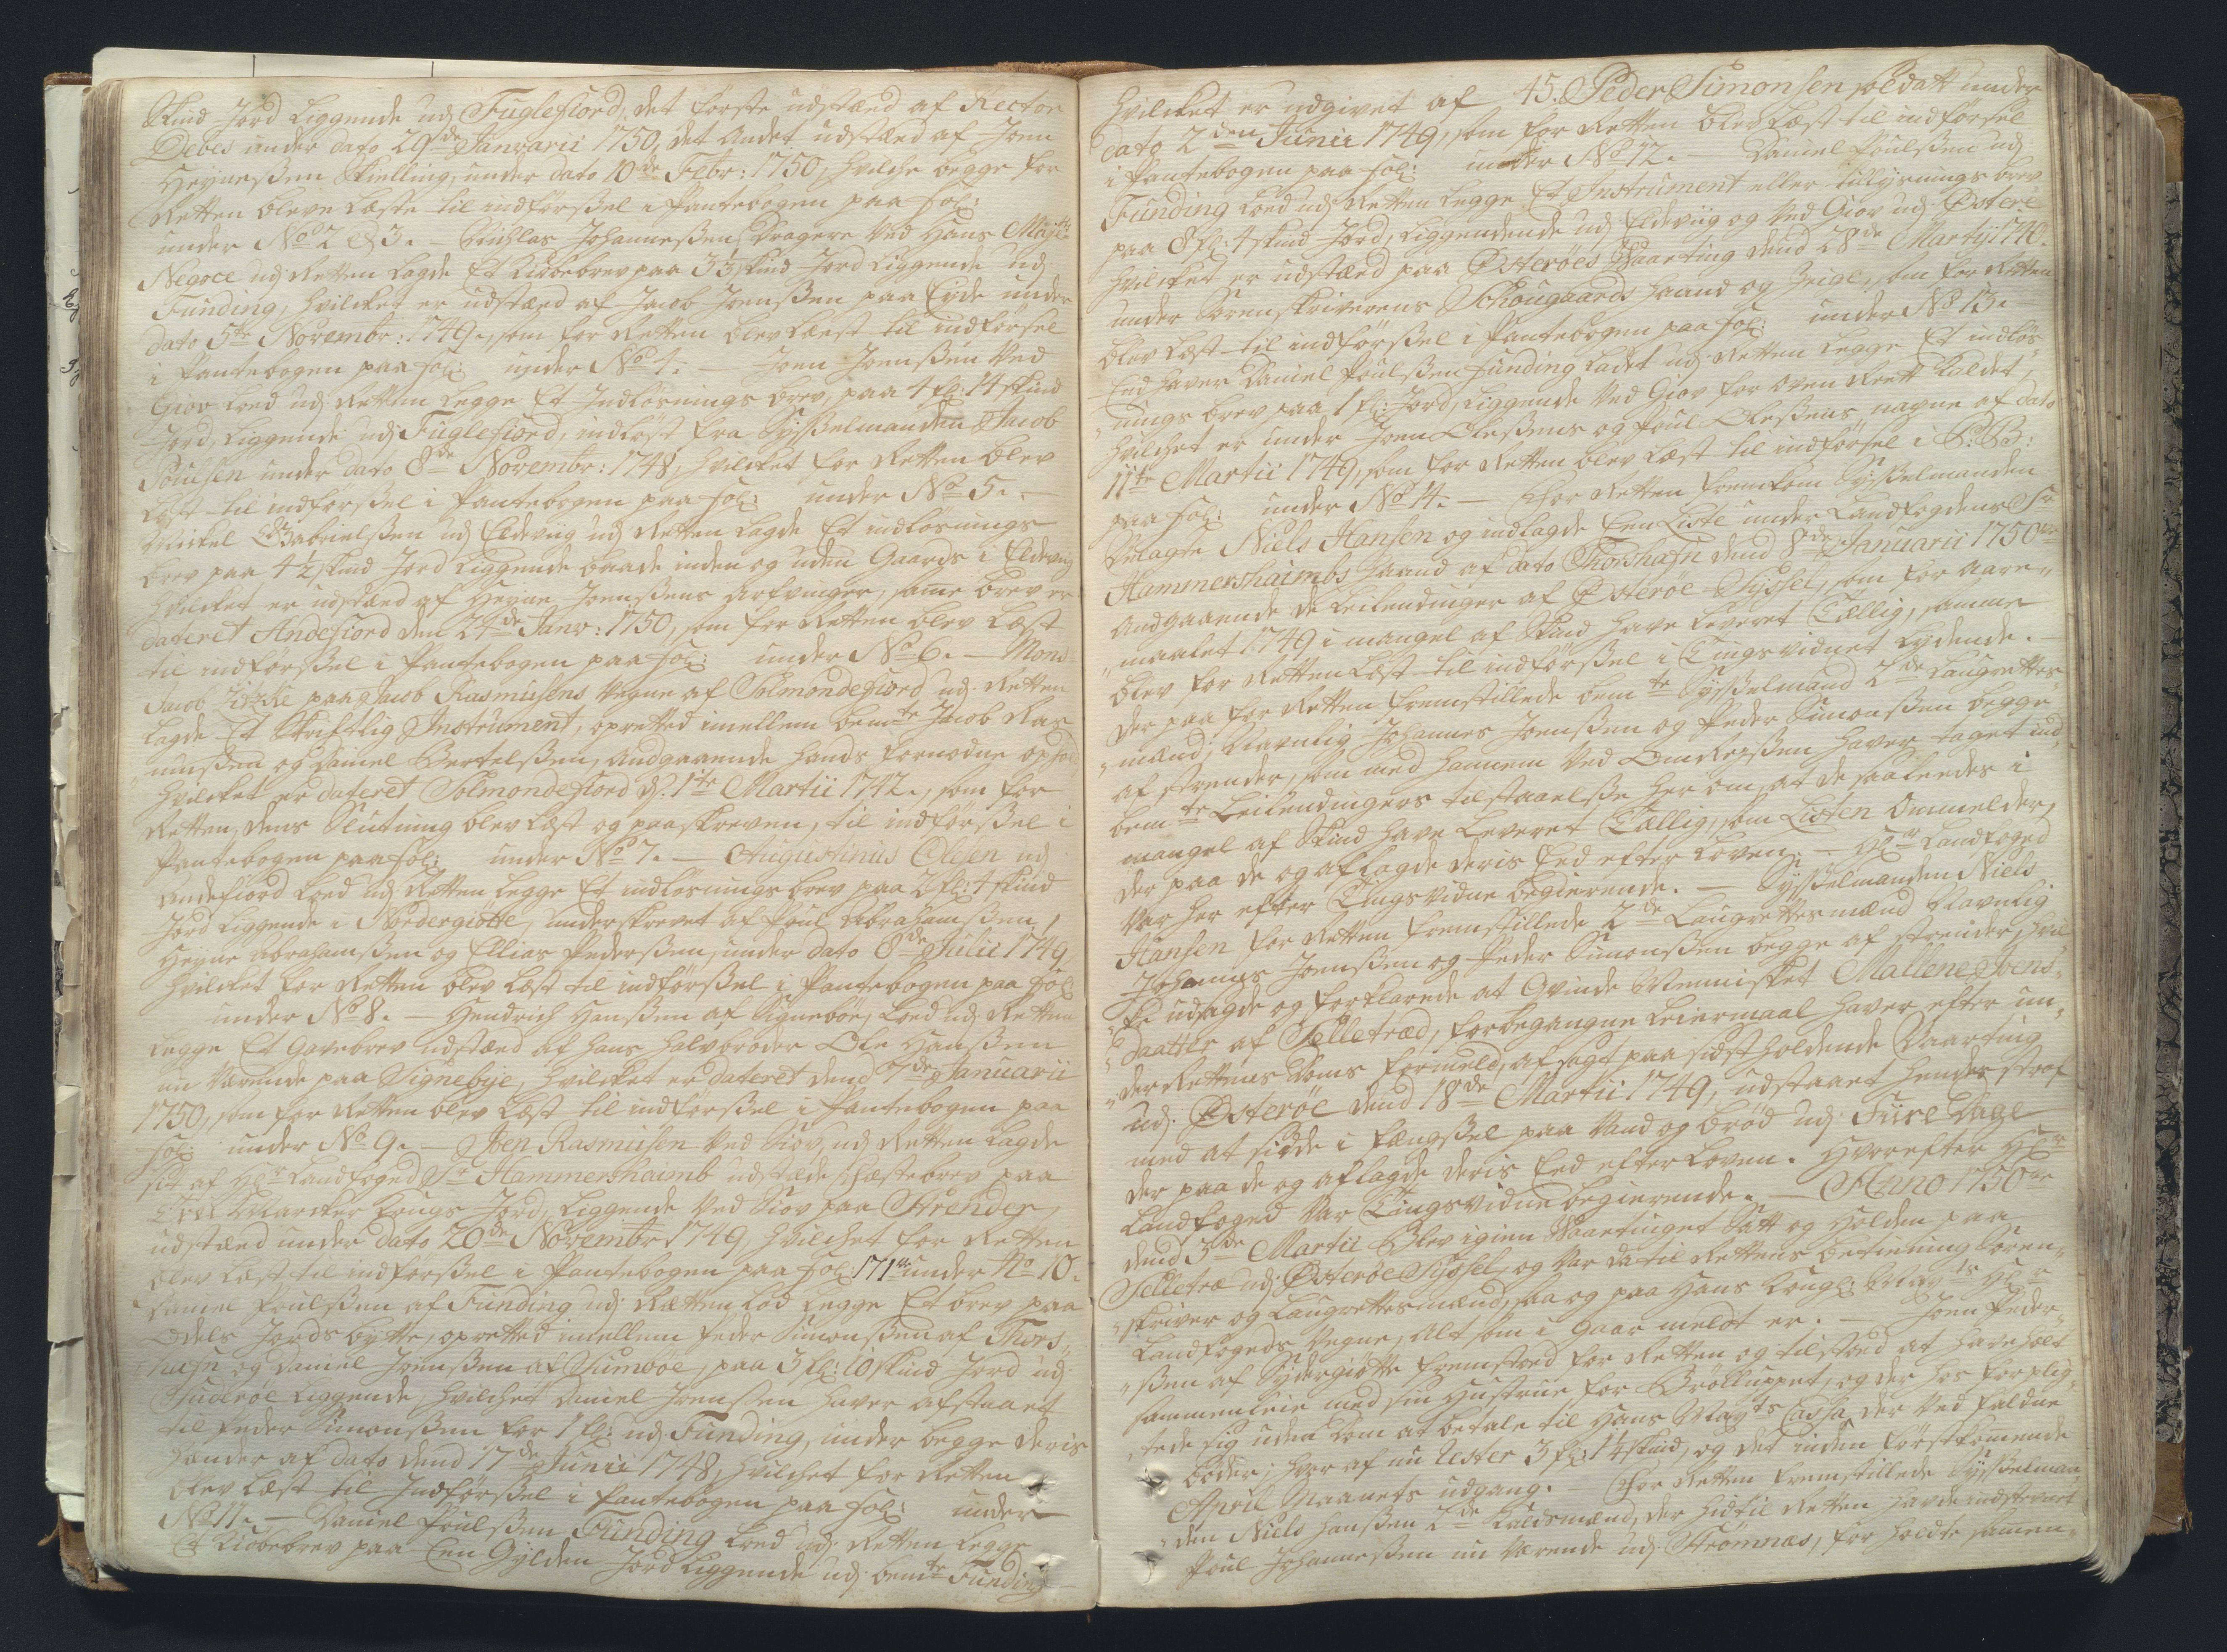 Skind Jord Liggende udj Fuglefiord, det første udstæd af Rector
Debes under dato 29de Januarii 1750, det Andet udstæd af Joen
Heyneßen Skielling, under dato 10de Febr: 1750, hvilche begge for
Retten bleve læste til indførßel i Pantebogen paa fol:
under No 2 & 3. — Nichlas Johanneßen Dragere ved Hans Mayts
Negoce udj Retten lagde Et Kiøbebrev paa 3½ skind Jord Liggende udj
Funding, hvilcket er udstæd af Jacob Joenßen paa Eyde under
dato 5te Novembr: 1749., som for Retten blev læst til indførsel
i Pantebogen paa fol: under No 4. — Joen Joenßen ved
Giov loed udj Retten legge Et Indløsnings brev, paa 4 fl: 14 skind
Jord, Liggende udj Fuglefiord, indløst fra Sysselmanden Jacob
Poulsen under dato 8de Novembr: 1748, hvilcket for Retten blev
læst til indførßel i Pantebogen paa fol: under No 5. —
Mickel Gabrielßen udj Eldeviig udj Retten lagde Et indløsnings
brev paa 4½ skind Jord Liggende baade inden og uden Gaards i Eldeviig
hvilcket er udstæd af Heyne Joenßens Arfvinger, samme brev er
dateret Andefiord den 24de Janv: 1750, som for Retten blev læst
til indførßel i Pantebogen paa fol: under No 6. — Mons
Jacob paa Jacob Rasmusens vegne af Solmondefiord udj Retten
lagde Et Skriftlig Instrument, oprettet imellem bemte Jacob Ras
mußen og Daniel Bertelßen, Andgaaende hands fornødne ophold
hvilcket er dateret Solmondefiord d: 1te Martii 1742., som for
Retten, dens Slutning blev læst og paaskreven, til indførßel i
Pantebogen paa fol: under No 7. — Augustinus Olesen udj
Andefiord loed udj Retten legge Et indløsnings brev paa 2 fl: 4 skind
Jord Liggende i Nordergiøtte, underskrevet af Poul Abrahamßen,
Heyne Abrahamßen og Ellias Pederßen, under dato 8de Julii 1749
hvilcket for Retten blev læst til indførßel i Pantebogen paa fol:
under No 8. — Hendrich Hanßen af Signebøe, loed udj Retten
legge Et Gavebrev udstæd af hans halvbroder Ole Hanßen
nu værende paa Signebye, hvilcket er dateret dend 7de Januarii
1750, som for Retten blev læst til indførßel i Pantebogen paa
fol: under No 9. — Joen Rasmusen ved Giov, udj Retten lagde
sit af Hr Landfoged Sr Hammershaimb udstæde Fæstebrev paa
Marcker Kongs Jord, Liggende ved Giov paa Strender,
udstæd under dato 20de Novembr 1749, hvilchet for Retten
blev læst til indførßel i Pantebogen paa fol: 171 under No 10.
Daniel Poulßen af Funding udj Rætten lod legge Et brev paa
Odels Jords bytte, oprettet imellem Peder Simonßen af Thors
hafn og Daniel Joenßen af Sumbøe, paa 3 fl: 10 skind Jord udj
Suderøe Liggende, hvilchet Daniel Joenßen haver afstaaet
til Peder Simonßen for 1 fl: udj Funding, under begge deris
hænder af dato dend 17de Junii 1748, hvilchet for Retten
blev læst til Indførßel i Pantebogen paa fol: under
No 11. — Daniel Poulßen Funding loed udj Retten legge
Et Kiøbebrev paa Een Gylden Jord Liggende udj bemte Funding
hvilcket er udgivet af 45. Peder Simonsen soldatt under
dato 2den Junii 1749, som for Retten blev læst til indførsel
i Pantebogen paa fol: under No 12. — Daniel Poulßen udj
Funding loed udj Retten legge Et Instrument eller tillysnings brev
paa 8 fl: 4 skind Jord, Liggendende udj Eldeviig og ved Giov udj Østerø
hvilcket er udstæd paa Østerøes Vaarting dend 28de Martij 1740.
under Sorenskriverens Schougaards haand og Zeigl, som for Retten
blev læst til indførßel i Pantebogen paa fol: under No 13.
End haver Daniel Poulßen Funding ladet udj Retten legge Et indløs
nings brev paa 1 fl: Jord, Liggende ved Giov for oven Reett kaldet,
hvilchet er under Joen Oleßens og Poul Oleßens nagne af dato
11te Martii 1749, som for Retten blev læst til indførßel i P: B:
paa fol: under No 14. — For Retten fremkom Sysßelmanden
Velagte Niels Hansen og indlagde Een Liste under Landfogdens Sr
Hammershaimbs haand af dato Thorshafn dend 8de Januarii 1750
Andgaaende de Leilendinger af Østerøe Syssel, som for Aare
maalet 1749 i mangel af Skind have leveret Tællig, samme
blev for Retten læst til indførßel i Tingsvidnet lydende. —
der paa for Retten fremstillede bemte Sysßelmand 2de Laugrettes
mænd, Navnlig Johannes Joenßen og Peder Simonßen begge
af Strender, som med hannem ved Omreisßen haver taget ind
bemte Leilendingers tilstaaelße her om, at de saaledes i
mangel af Skind have leveret Tællig, som Listen Ommelder,
der paa de og aflagde deris Eed efter Loven. — Hr Landfoged
var her efter Tingsvidne begierende. — Sysßelmanden Niels
Hansen for Retten fremstillede 2de Laugrettesmænd Navnlig
Johannes Joenßen og Peder Simonßen begge af Strender, hvil
ke udsagde og forklarede at Qvinde Mennisket Mallene Joens
daatter af Selletræd, forbegangne Leiermaal haver efter un
der Rettens Doms formeld, afsagt paa sidst holdende Vaarting
udj Østerøe dend 18de Martii 1749, udstaaet hendes straf
med at sidde i Fængsßel paa Vand og brød udj Fiire Dage
der paa de og aflagde deris Eed efter Loven. Hvorefter Hr
Landfoged var Tingsvidne begierende. — Anno 1750
dend 3de Martii Blev igien Vaartinget Satt og Holden paa
Selletræ udj Østerøe Syssel, og var da til Rettens betiening Soren
skriver og Laugrettesmænd, saa og paa Hans Kongl: Hr
Landfogeds vegne, Alt som i Gaar meldt er. — Joen Peder
ßen af Sydergiøtte fremstoed for Retten og tilstoed at have holt
sammenleie med sin Hustrue for Brølluppet, og der hos forplig
tede sig uden Dom at betale til Hans Mayts Cassa der ved faldne
bøder, hvor af nu rester 3 fl: 14 skind, og det inden førstkomende
April Maanets udgang. — For Retten fremstillede Sysßelman
den Niels Hanßen 2de Kaldsmænd, der hid til Retten havde indstevnet
Poul Johanneßen nu værende udj Strømnæs, for holdte sammen